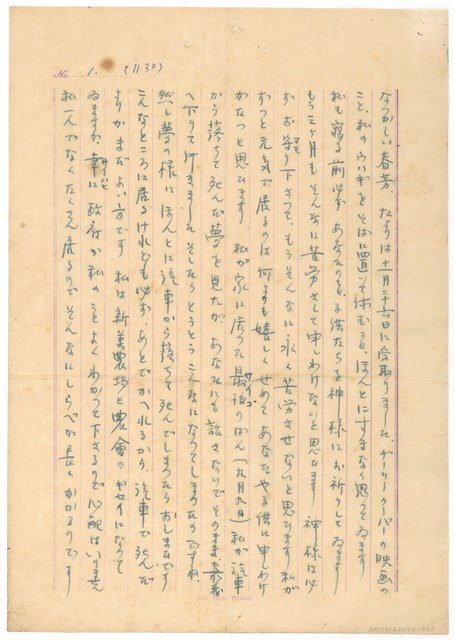 No. 1. (11.30)
なつかしい春芳、たよりは十一月二十六日に受取りました、ゲーリークーパーの映画の
こと、私のウハギをそばに置いて休むこと、ほんとにすまなく思って居ます
私も寝る前必ずあなたのこと、子供たちを神様にお祈りして居ます
もう三ヶ月もそんなに苦労さして申しわけないと思ひます 神様は必
ずお守り下さって、もうそんなに永く苦労させないと思ひます 私が
ずっと元気で居るのは何よりも嬉しく せめてあなたや子供に申しわけ
がたつと思ひます 私が家に居った最後のばん(九月九日)私が汽車
から落ちて死んだ夢を見たが、あなたにも話さないでそのまま
へ下りて行きました そしたらとうとうこんなになってしまったのですね、
然し夢の様にほんとに汽車から落ちて死んでしまったらおしまいです
こんなところに居るけれども必ず、あとでかへれるから、汽車で死んだ
よりかまだよい方です 私は新美農場と農會のギセイになって
ゐますが、幸に政府が私のことよくわかって下さるので心配はいりません
私一人でなくたくさん居るのでそんなにしらべが長くかかるのです